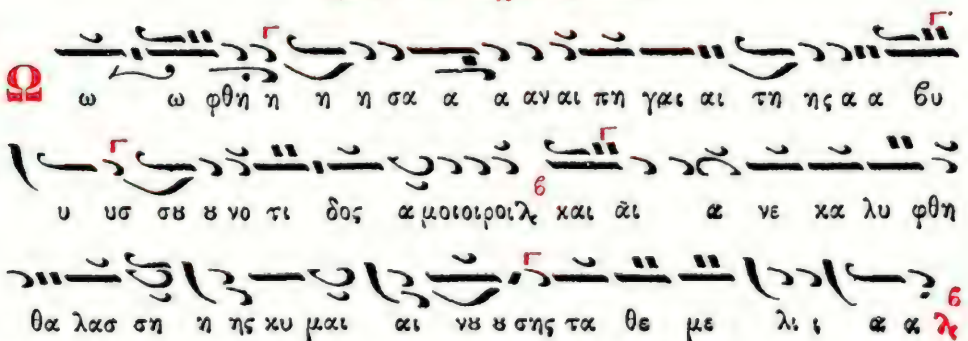 Ω ω ω φθη η η η σα α α αν αι πη γαι αι τη ης α α βυ
υ υσ σȣ ȣ νο τι δος α μοιοιροι και ἀι α νε κα λυ φθη
θα λασ ση η ης κυ μαι αι νȣ ȣ σης τα θε με λι ι α α